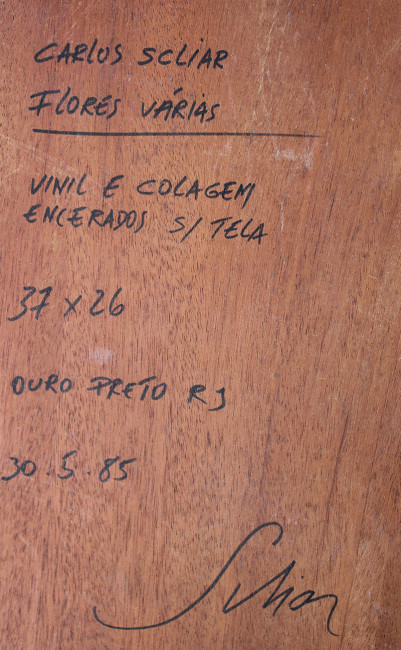 CARLOS SCLIAR
FLORES VÁRIAS
VINIL E COLAGEM
ENCERADOS S/ TELA
37 x 26
OURO PRETO RJ
30.5.85
Scliar